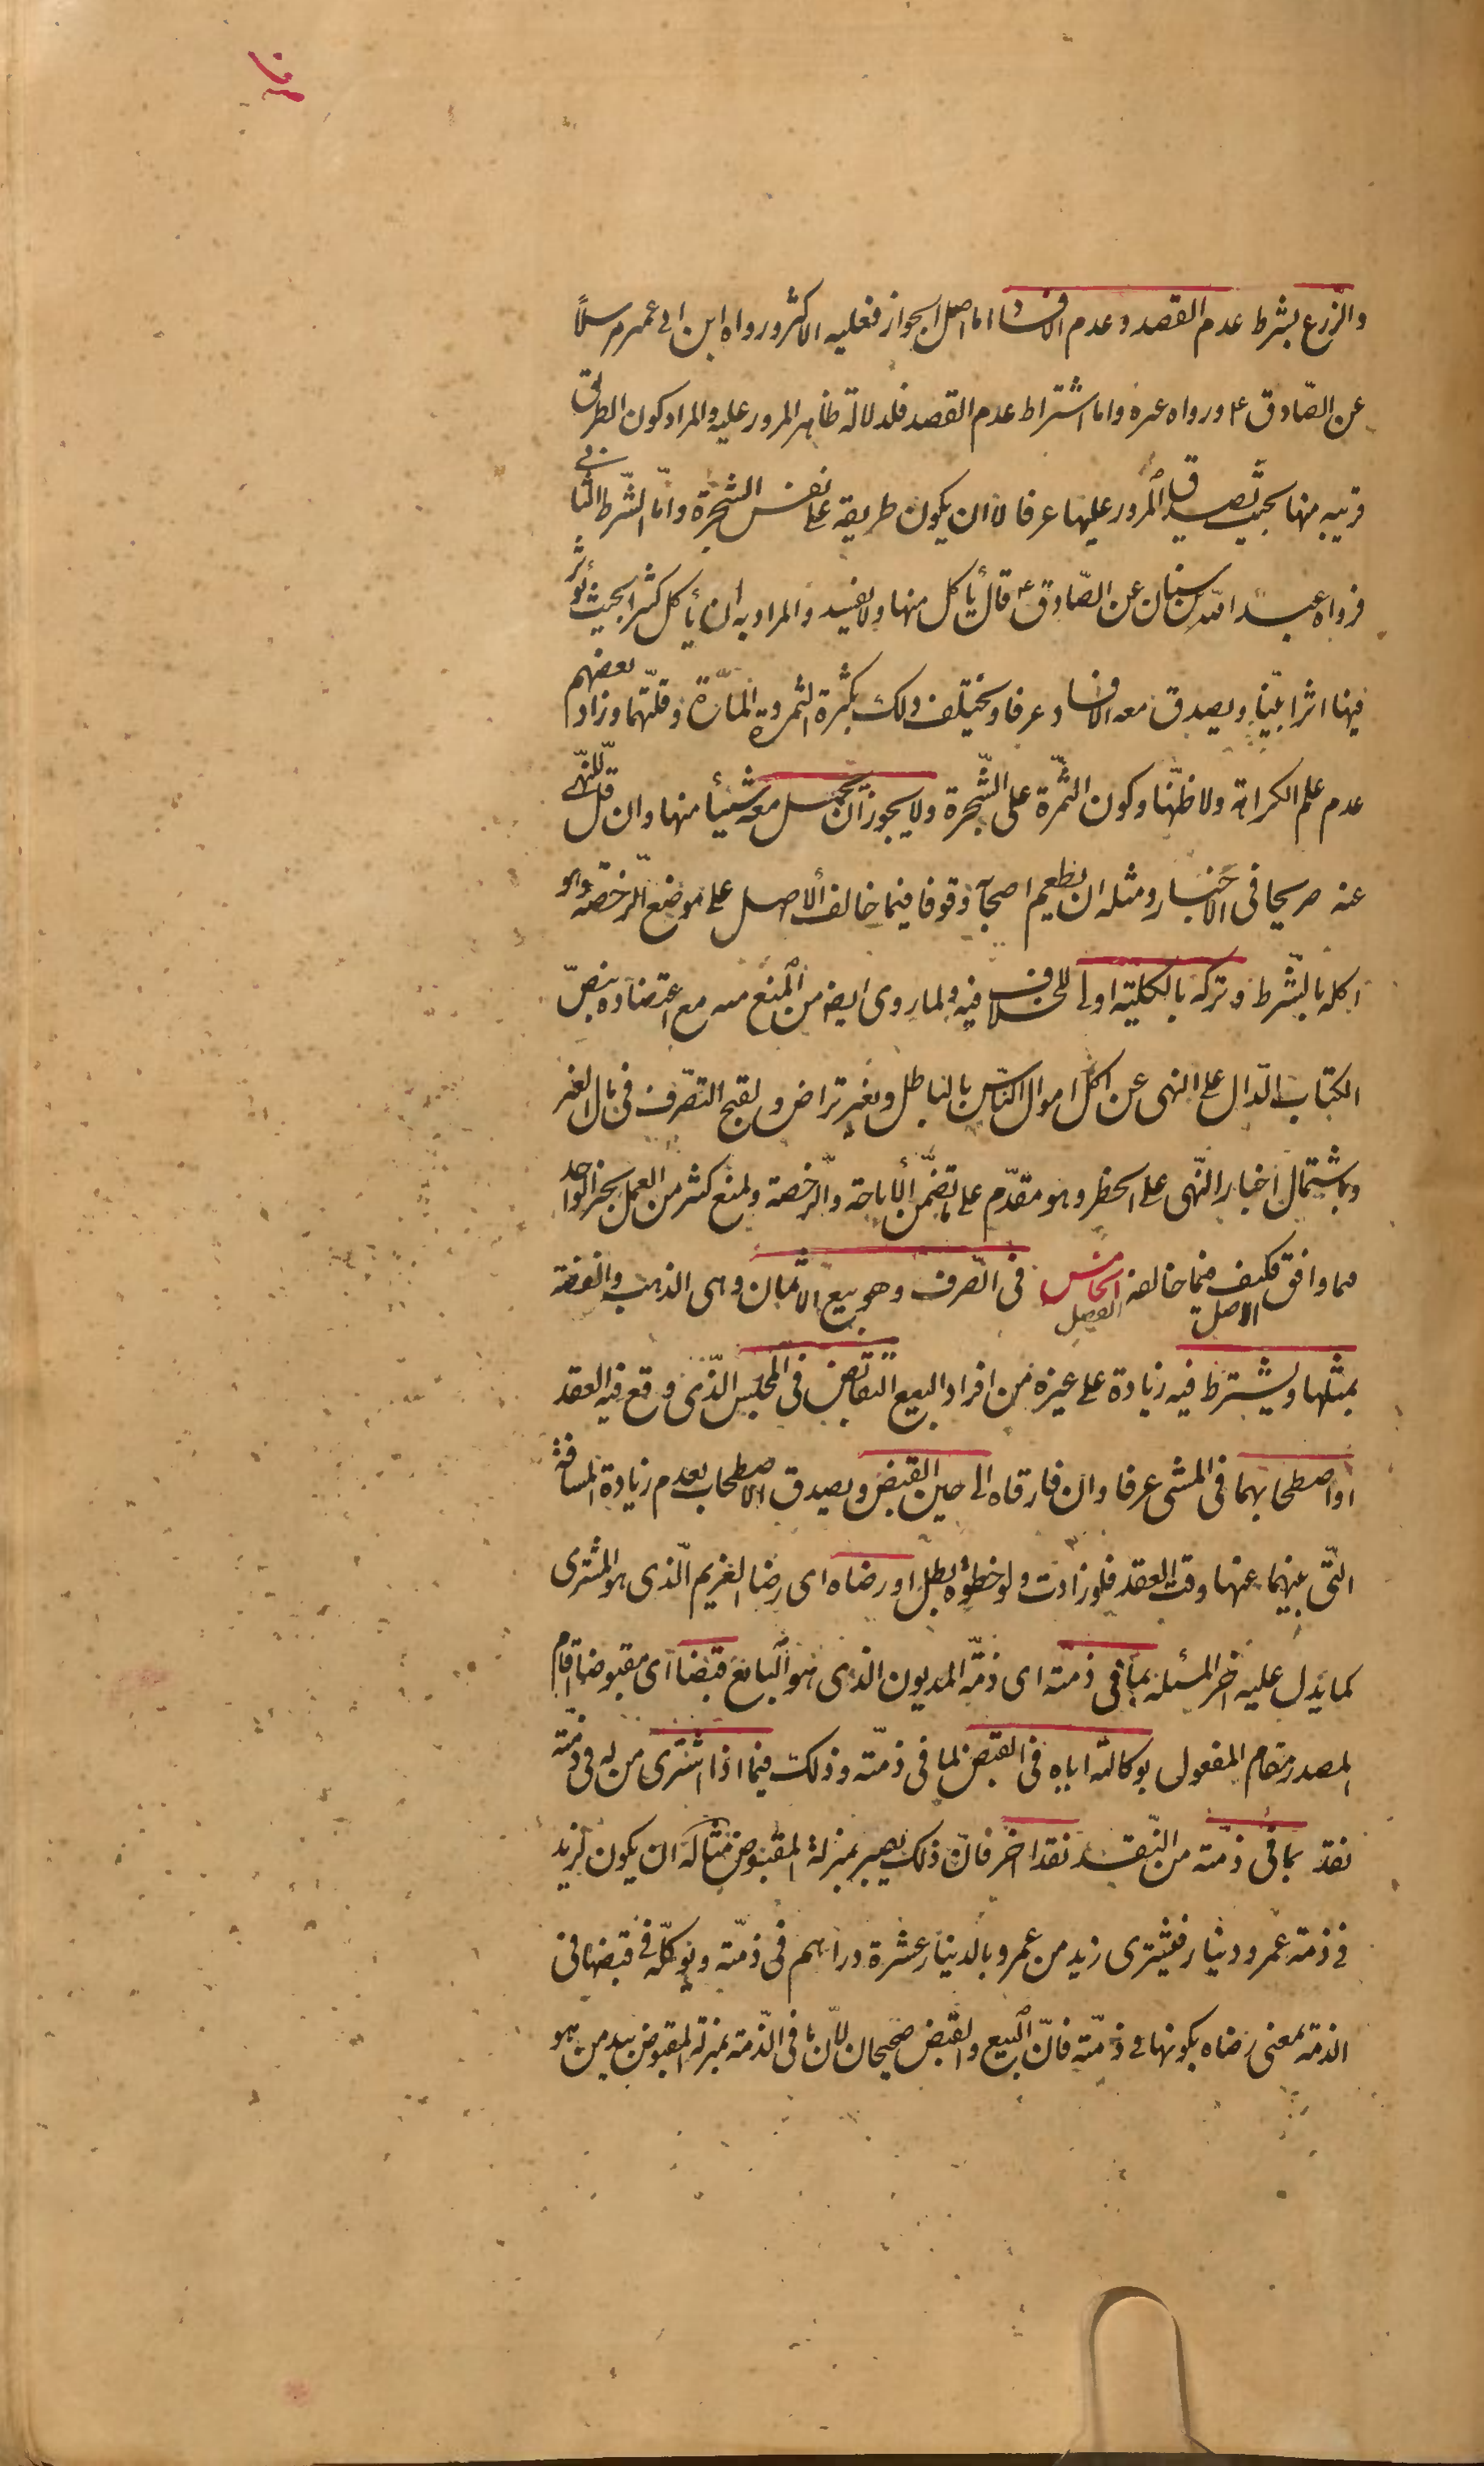 والزرع بشرط عدم القصد وعدم الافساد اما اصل الجواز فعليه الاكثر ورواه ابن ابى عمير مرسلاً
عن الصّادق ع ورواه غيره واما اشتراط عدم القصد فلدلالة ظاهر المرور عليه والمراد كون الطريق
قريبه منها بحيث يصدق المرور عليها عرفا لا ان يكون طريقه على نفس الشجرة وامّا الشّرط الثانى
فرواه عبد الله بن سنان عن الصّادق ع قال يأكل منها ولا يفسد والمراد به ان يأكل كثيرا بحيث يؤثر
فيها اثرا بيّنا ويصدق معه الافساد عرفا ويختلف ذلك بكثرة الثمرة والمارّة وقلّتهما وزاد بعضهم
عدم علم الكراهة ولا ظنّها وكون الثمرة على الشّجرة ولا يجوز ان يحمل معه شيئا منها وان قلّ للنّهى
عنه صريحا فى الاخبار ومثله ان يطعم اصحابه وقوفا فيما خالف الاصل على موضع الرخصة وهو
اكله بالشّرط وتركه بالكليّة اولى للخلاف فيه ولما روى ايضا من المنع منه مع اعتضاده بنصّ
الكتاب الدّال على النهى عن اكل اموال النّاس بالباطل وبغير تراض ولقبح التصّرف فى مال الغير
وباشتمال اخبار النّهى على الحظر وهو مقدّم على ما تضمّن الأباحة والرّخصة ولمنع كثير من العمل بخبر الواحد
فيما وافق الاصل فكيف فيما خالفه الفصل الخامس فى الصّرف وهو بيع الاثمان وهى الذهب والفضة
بمثلها ويشترط فيه زيادة على غيره من افراد البيع التقابض فى المجلس الّذى وقع فيه العقد
او اصطحابهما فى المشى عرفا وان فارقاه الى حين القبض ويصدق الاصطحاب بعدم زيادة المسافة
التّى بينهما عنها وقت العقد فلو زادت ولو خطوة بطل او رضاه اى رضا الغريم الّذى هو المشترى
كما يدل عليه اخر المسئلة بما فى ذمّته اى ذمّة المديون الذى هو البايع قبضا اى مقبوضا اقام
المصدر مقام المفعول بوكالته اياه فى القبض لما فى ذمّته وذلك فيما اذا اشترى من له فى ذمّته
نقد بما فى ذمّته من النّقد نقدا اخر فانّ ذلك يصير بمنزلة المقبوض مثاله ان يكون لزيد
فى ذمة عمرو دينار فيشترى زيد من عمرو بالدينار عشرة دراهم فى ذمّته ويوكّله فى قبضها فى
الذمة بمعنى رضاه بكونها فى ذمّته فانّ البيع والقبض صحيحان لأنّ ما فى الذّمة بمنزلة المقبوض بيد من هو